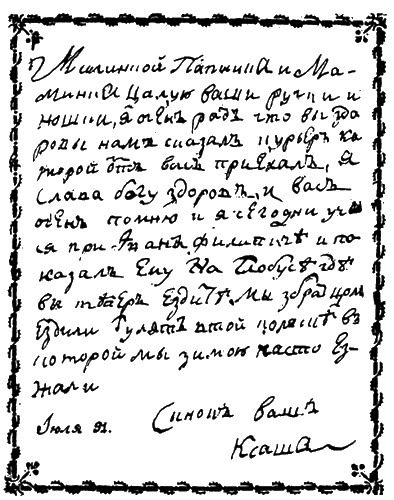 Милинкой Папинка и Ма-
минка Цалую ваши ручки и
ношки, я очень радъ что вы здо
ровы намъ сказалъ курьеръ ка
торой отъ васъ приехалъ, я
слава богу здоровъ, и васъ
очень помню и я сегодни учи
ся при Иванъ филипичѣ и по
казалъ Ему На Глобусѣ гдѣ
вы теперь Ездитѣ мы збратцом
Ездили Гулять втой коляскѣ въ
которой мы зимою часто Ез-
жали
Июля
Синокъ вашъ
Ксаша